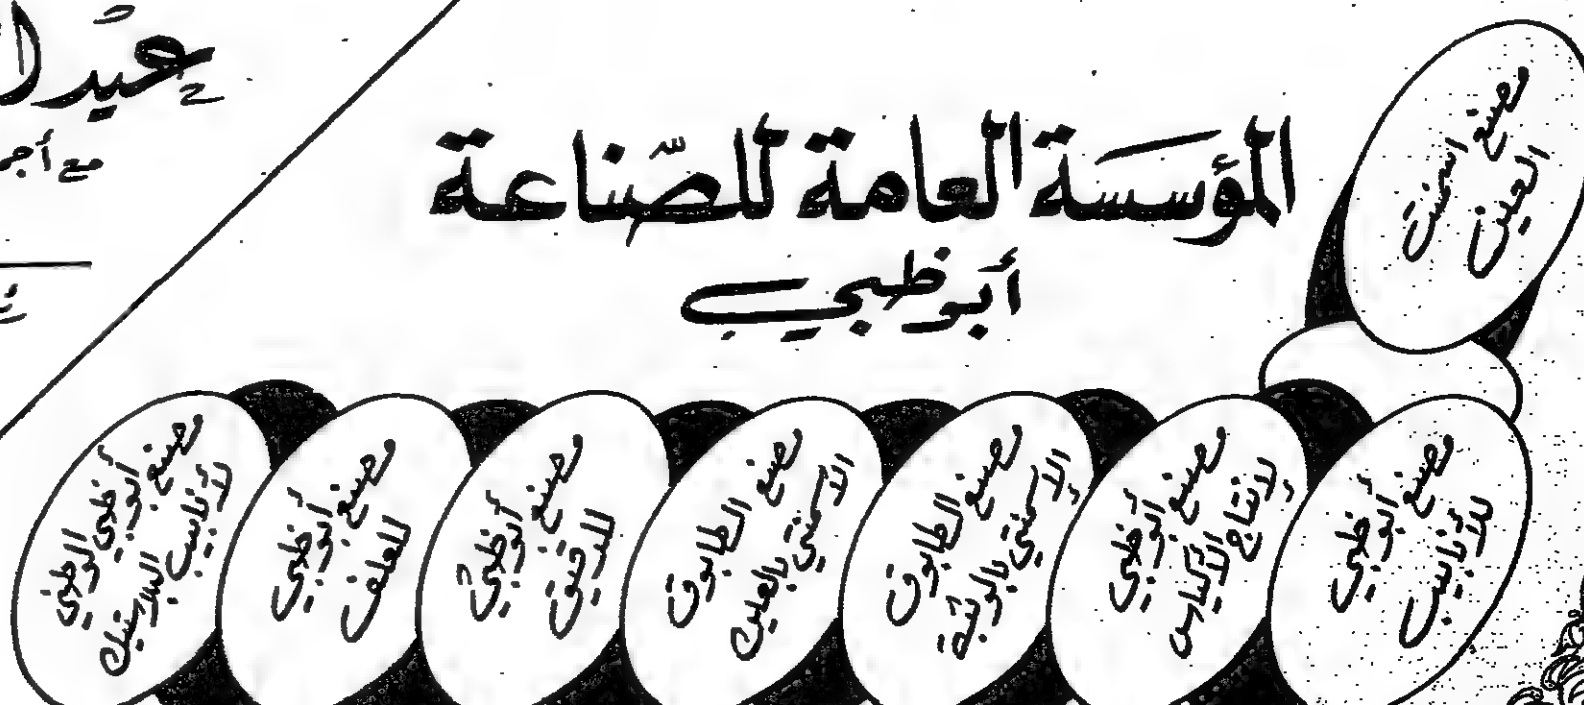 المؤسسة العامة للصناعة
أبوظبي
مصنع اسمنت
العين
مصنع أبوظبي
للأنابيب
مصنع أبوظبي
لإنتاج الأكياس
مصنع الطابوق
الإسمنتي بالوثبة
مصنع الطابوق
الاسمنتي بالعين
مصنع أبوظبي
للدقيق
مصنع أبوظبي
للعلف
مصنع أبوظبي الوطني
لأنابيب البلاستيك
مع